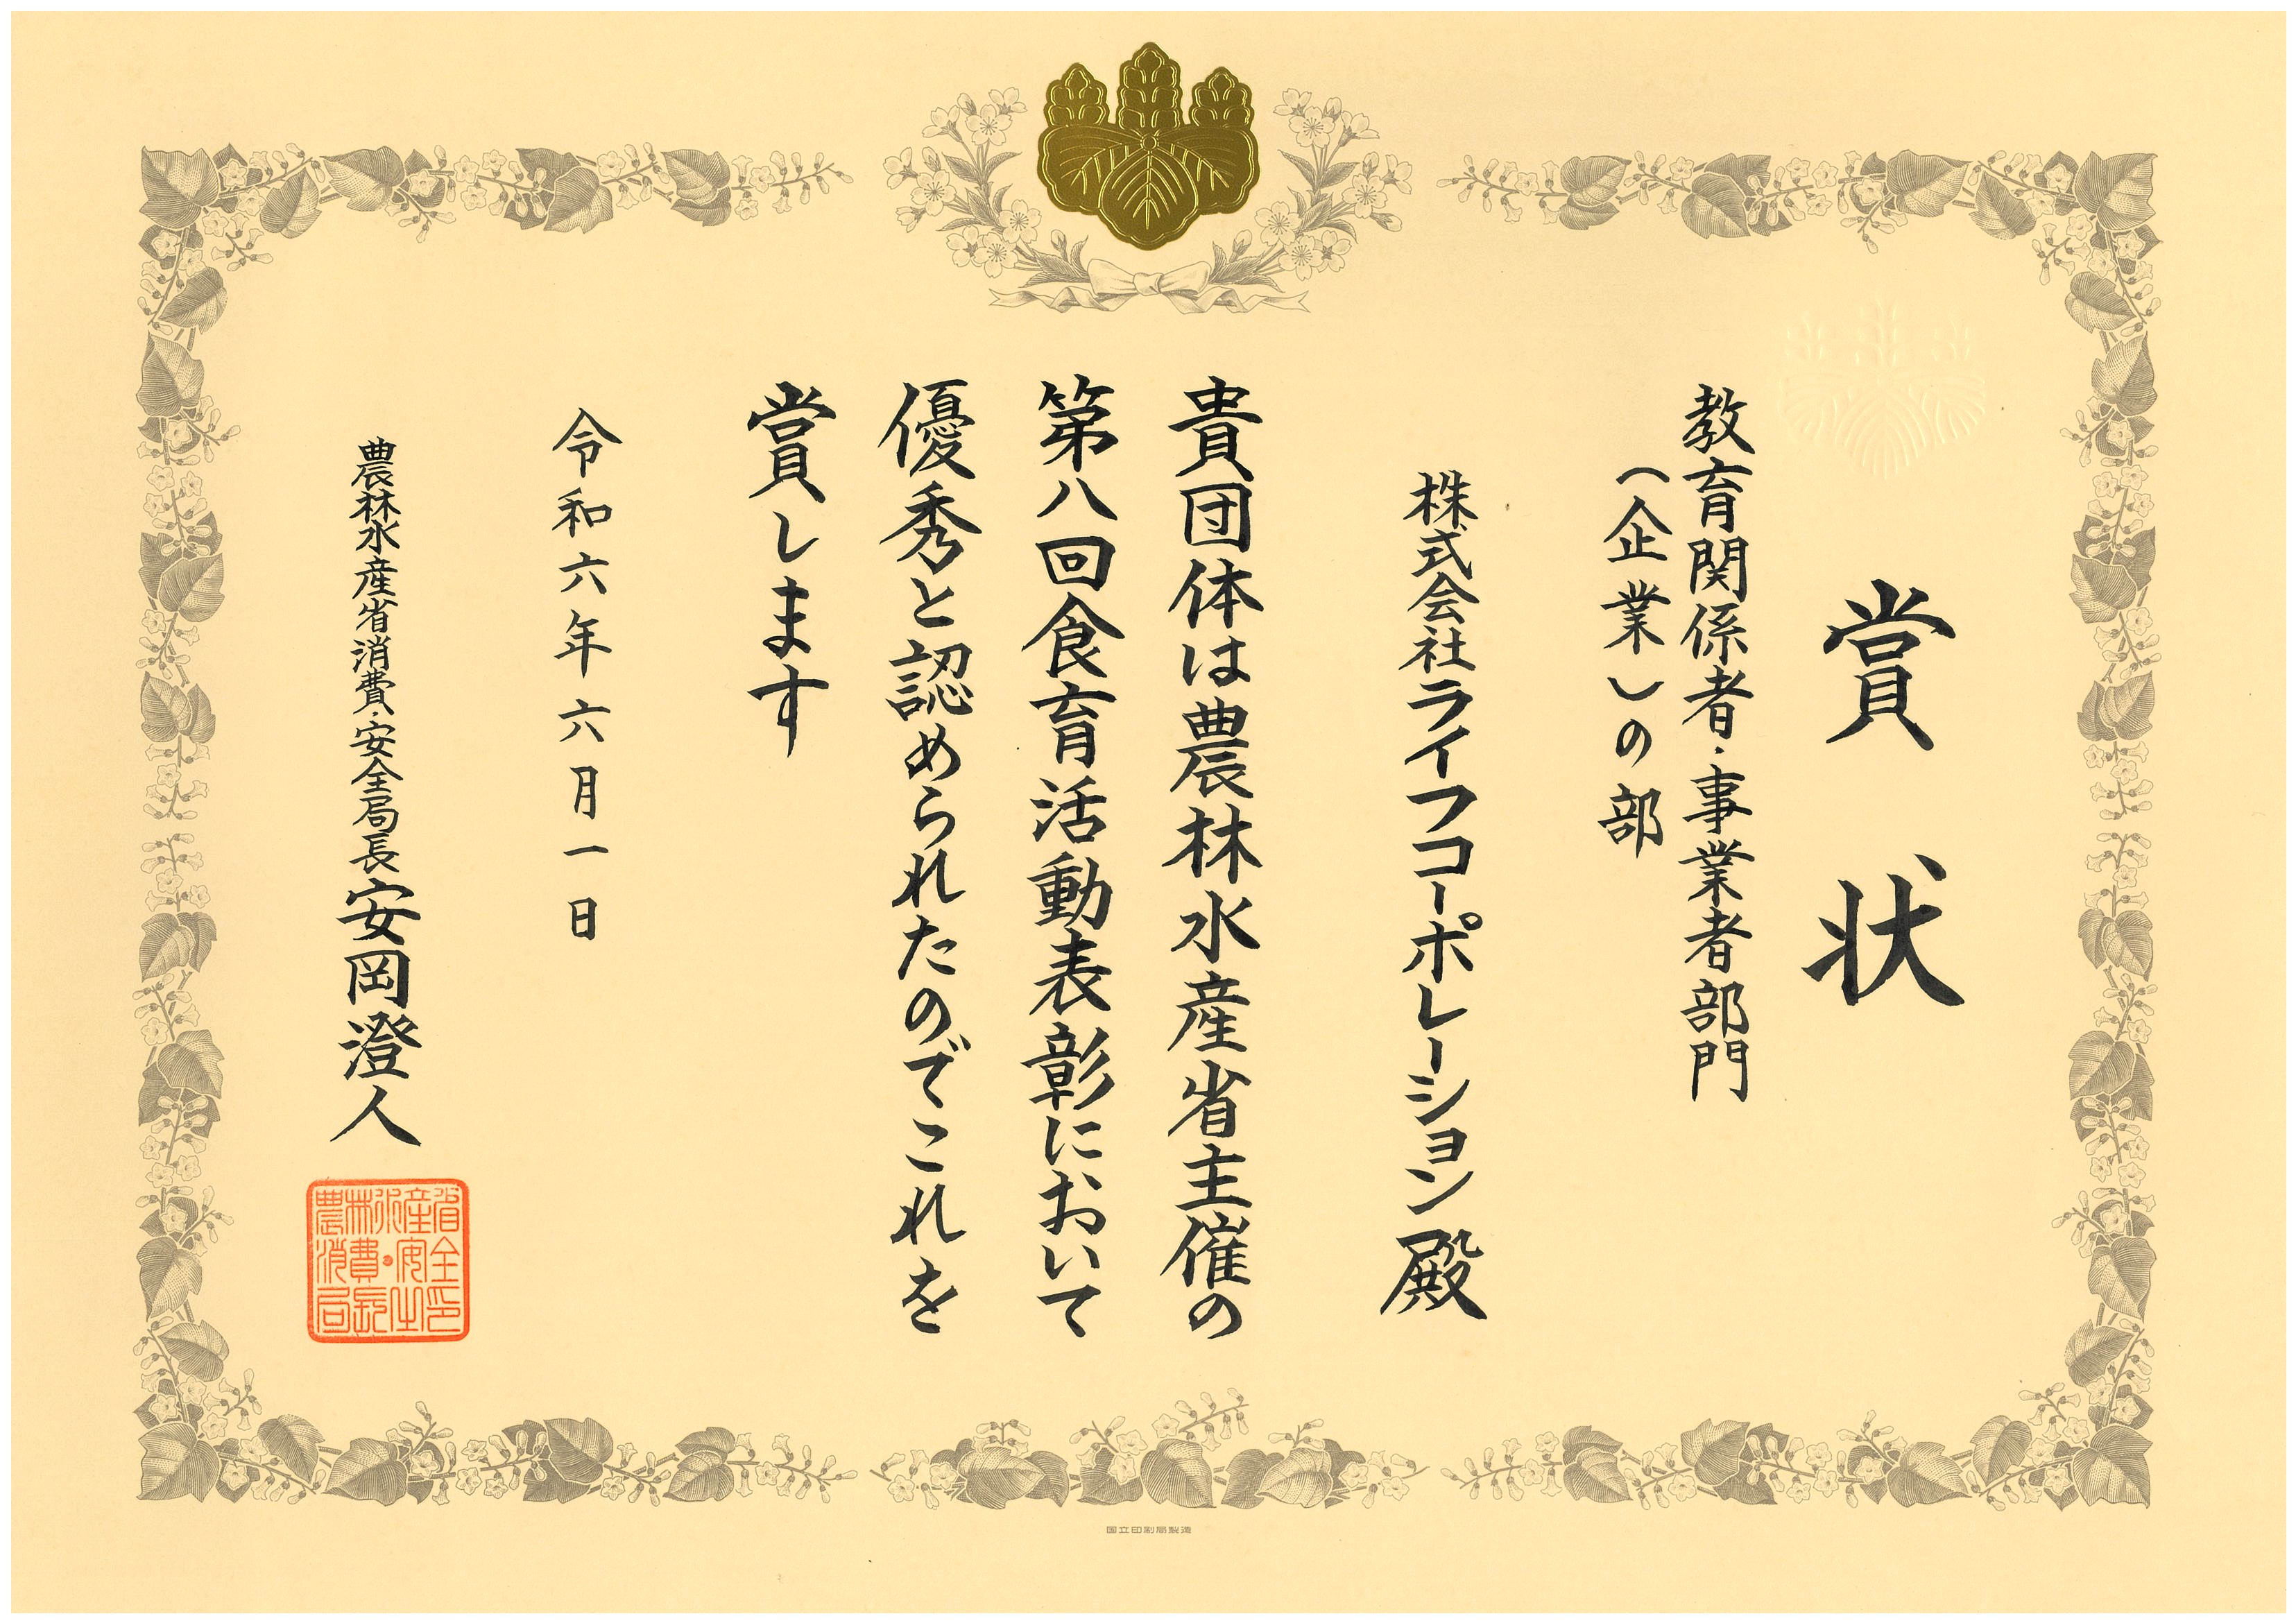 賞状
教育関係者・事業者部門
（企業）の部
株式会社ライフコーポレーション殿
貴団体は農林水産省主催の
第八回食育活動表彰において
優秀と認められたのでこれを
賞します
令和六年六月一日
農林水産省消費・安全局長安岡澄人
農林水産省
消費・安全
局長之印
国立印刷局製造